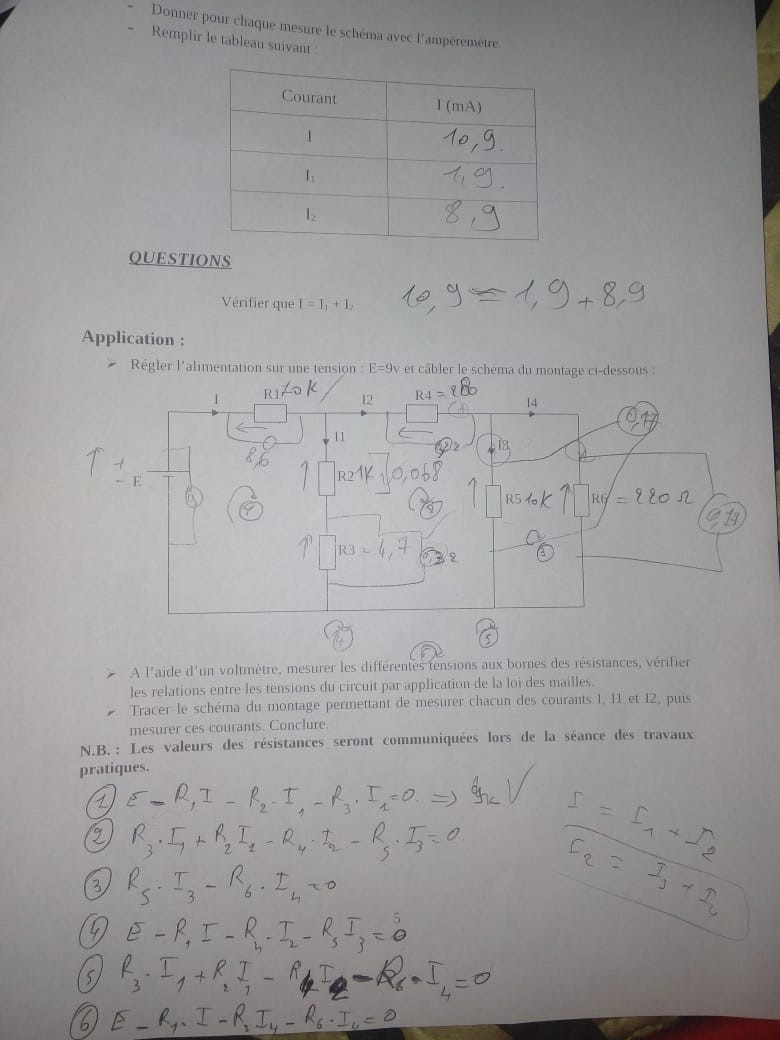 - Donner pour chaque mesure le schéma avec l'ampèremètre.
- Remplir le tableau suivant :
Courant I (mA)
I 10,9.
I₁ 1,9.
I₂ 8,9
QUESTIONS
Vérifier que I = I₁ + I₂ 10,9 = 1,9 + 8,9
Application :
➢ Régler l'alimentation sur une tension : E=9v et câbler le schéma du montage ci-dessous :
I R1 10K I2 R4 = I4
8,6 I1 I3
+ - E R2 1K 0,068 R5 10K R6 = 220 Ω
R3 = 4,7
3
5
➢ A l'aide d'un voltmètre, mesurer les différentes tensions aux bornes des résistances, vérifier
les relations entre les tensions du circuit par application de la loi des mailles.
➢ Tracer le schéma du montage permettant de mesurer chacun des courants I, I1 et I2, puis
mesurer ces courants. Conclure.
N.B. : Les valeurs des résistances seront communiquées lors de la séance des travaux
pratiques.
① E - R₁I - R₂.I₁ - R₃.I₁=0. =>
② R₃.I₁ + R₂I₁ - R₄.I₂ - R₅.I₃=0
③ R₅.I₃ - R₆.I₄=0
④ E - R₁I - R₄.I₂ - R₅I₃=0
5
⑤ R₃.I₁ + R₂I₁ - R₄I₂ - R₆.I₄=0
⑥ E - R₁.I - R₂I₄ - R₆.I₄=0
I = I₁ + I₂
I₂ = I₃ + I₄